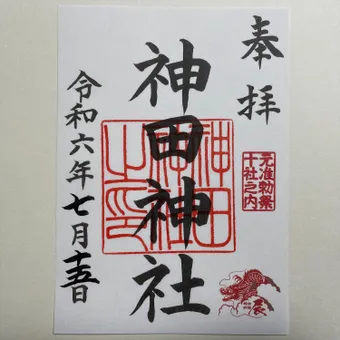 奉拝
元准勅祭
十社之内
辰
神田神社
神田神社之印
令和六年七月十五日